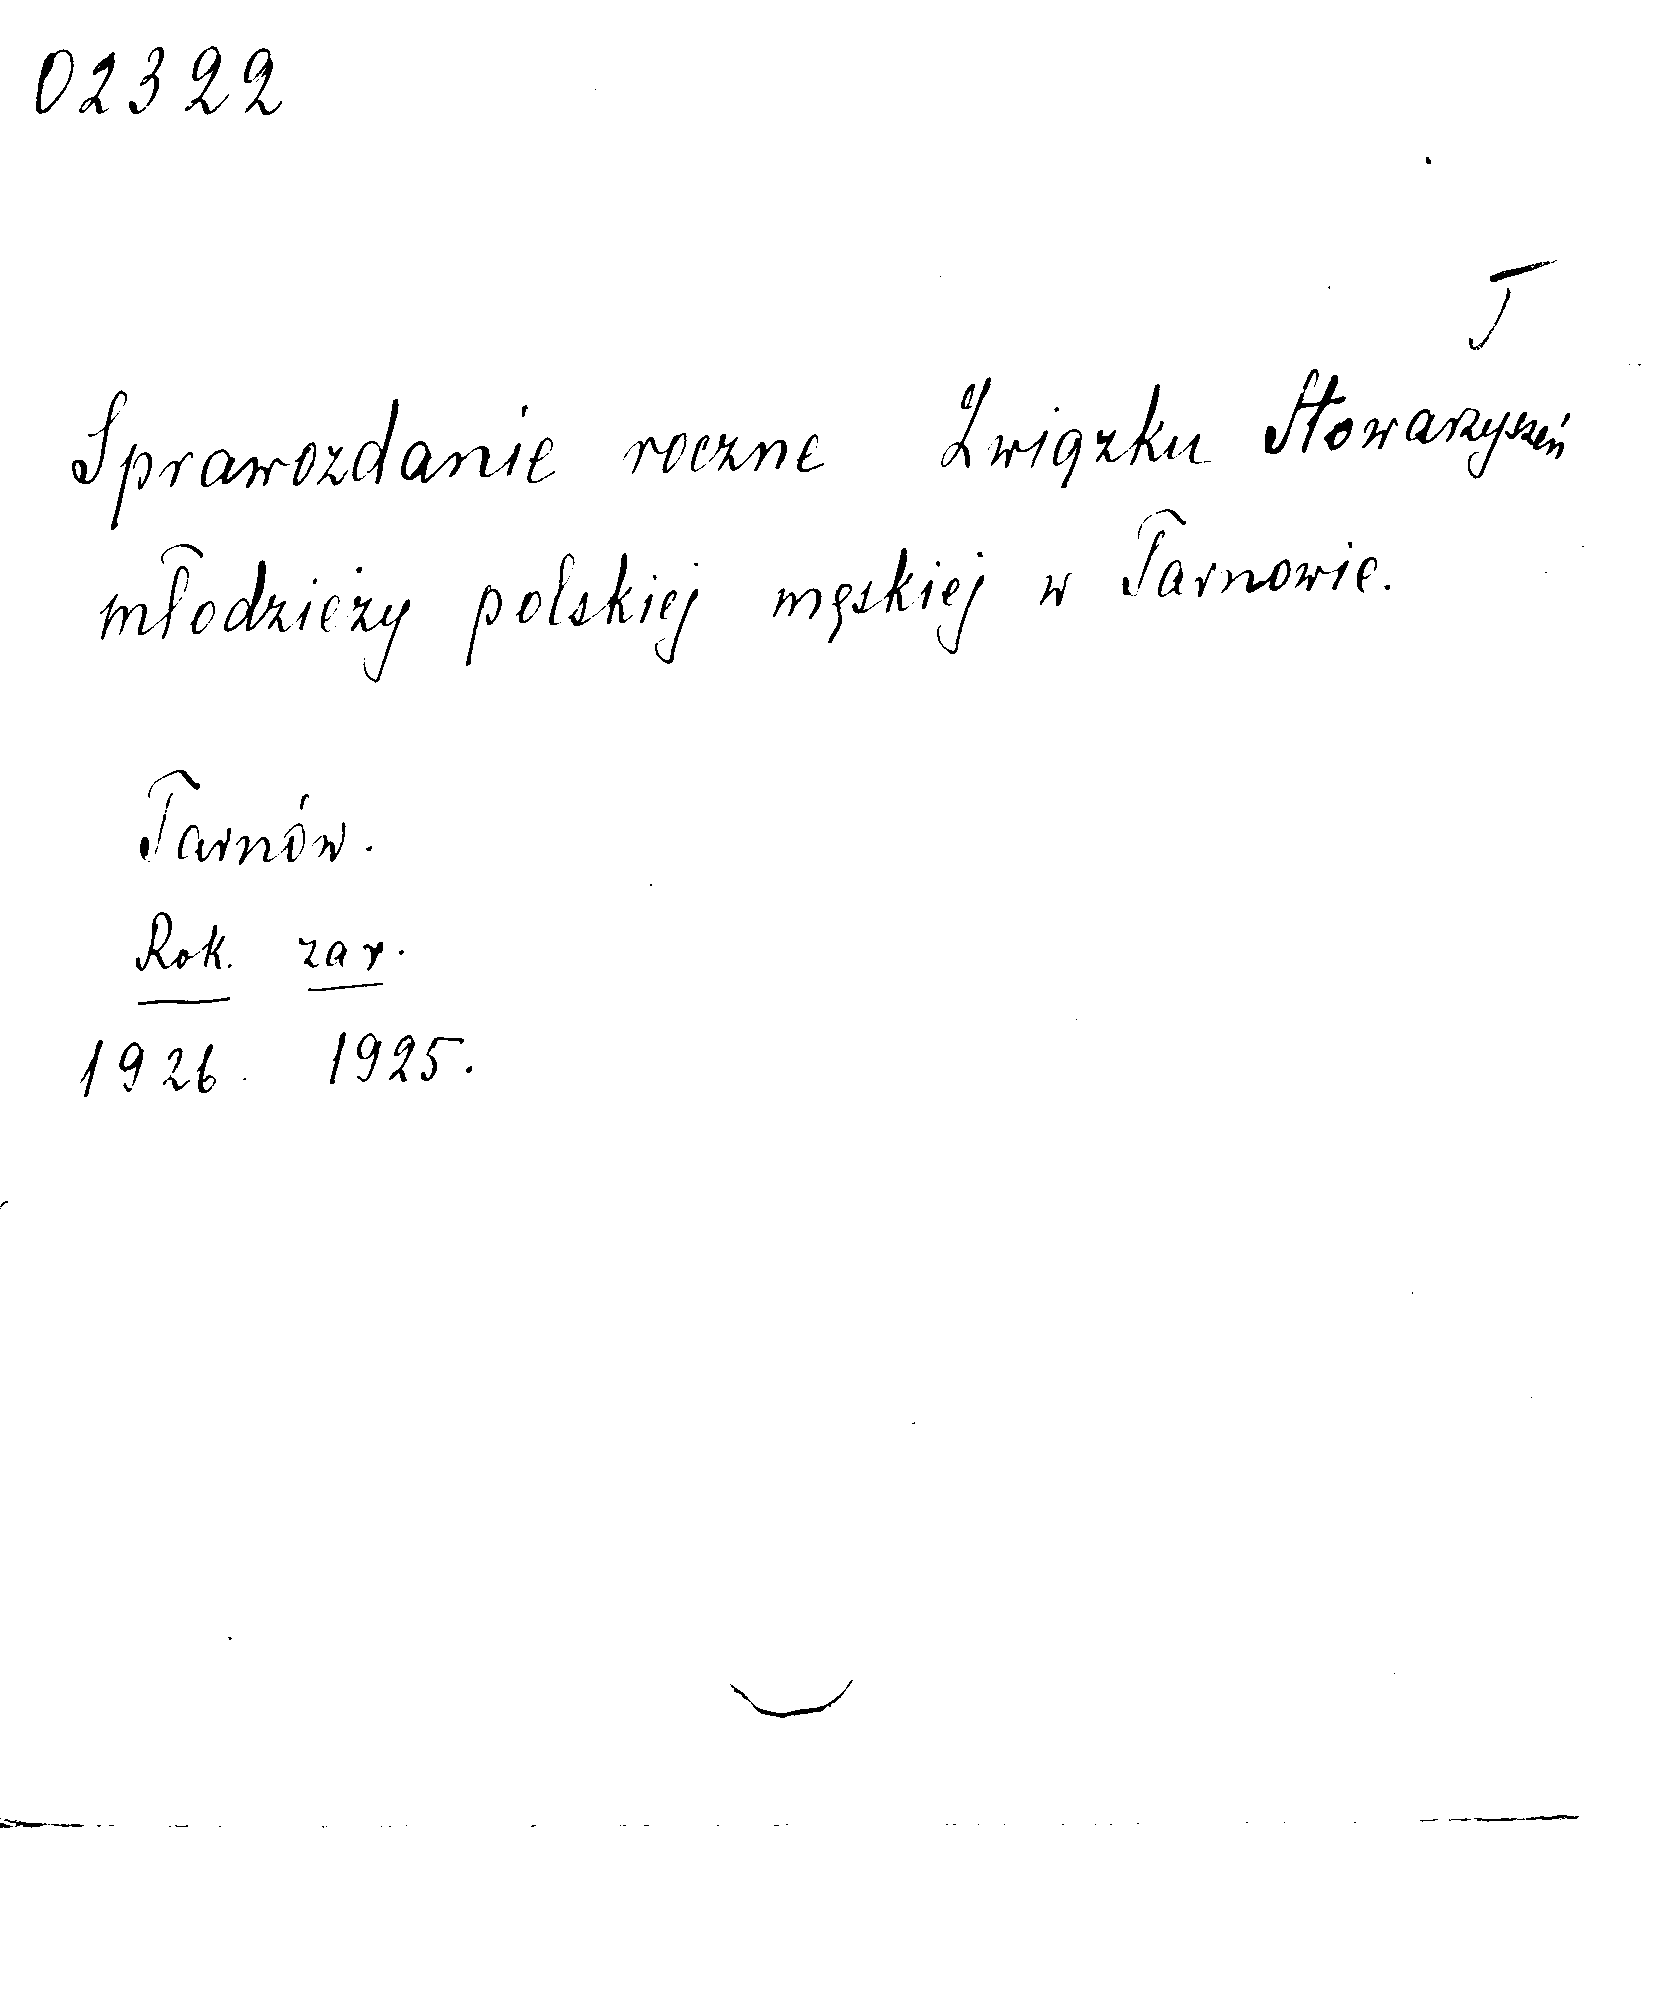 02322
T
Sprawozdanie roczne Związku Stowarzyszeń
młodzieży polskiej męskiej w Tarnowie.
Tarnów.
Rok. zar.
1926. 1925.